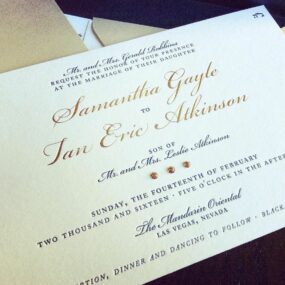 Mr. and Mrs. Gerald Robbins
REQUEST THE HONOR OF YOUR PRESENCE
AT THE MARRIAGE OF THEIR DAUGHTER
Samantha Gayle
TO
Ian Eric Atkinson
SON OF
Mr. and Mrs. Leslie Atkinson
SUNDAY, THE FOURTEENTH OF FEBRUARY
TWO THOUSAND AND SIXTEEN · FIVE O'CLOCK IN THE AFTER
The Mandarin Oriental
LAS VEGAS, NEVADA
PTION, DINNER AND DANCING TO FOLLOW · BLACK